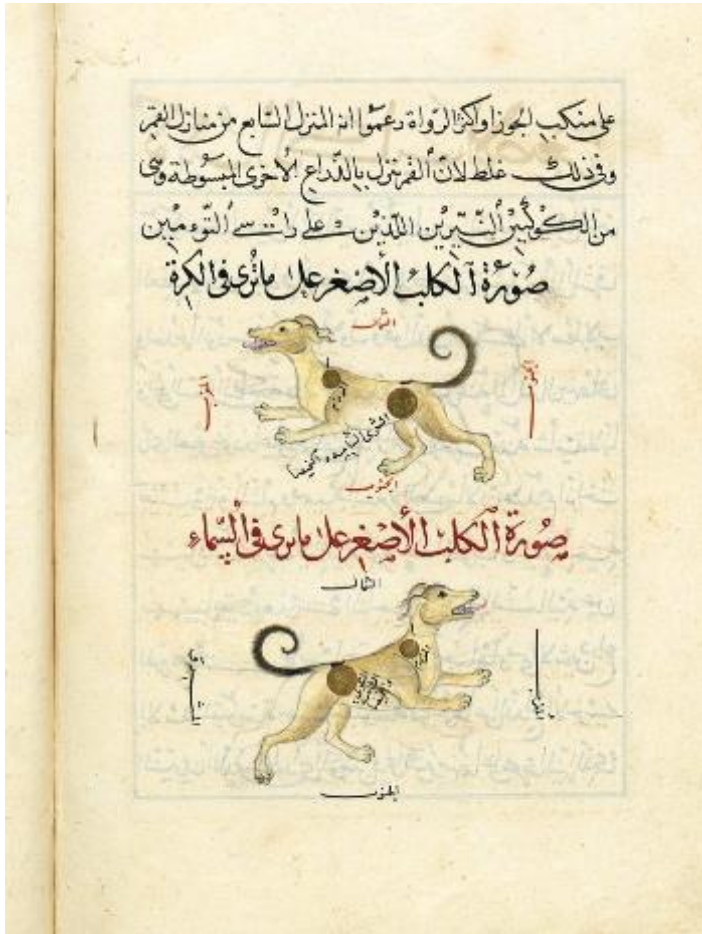 على منكب الجوزا واكثر الرواة زعموا انه المنزل السابع من منازل القمر
وفى ذلك غلط لان القمر ينزل بالذراع الاخرى المبسوطة وهى
من الكوكبين النيرين اللذين على راسى التوءمين
صورة الكلب الاصغر على ما ترى فى الكرة
الشمال
الجنوب
صورة الكلب الاصغر على ما يرى فى السماء
الشمال
المشرق
المغرب
الجنوب